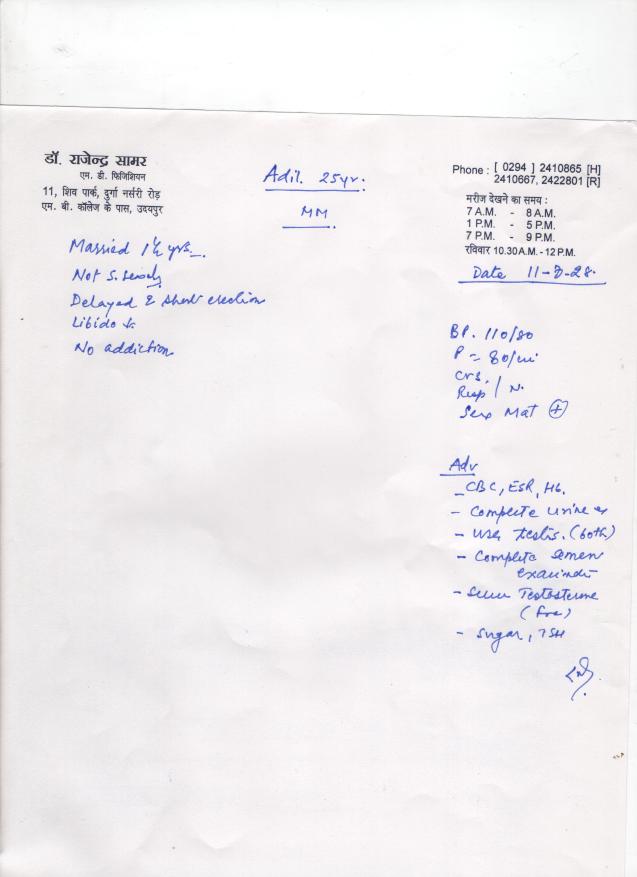 डॉ. राजेन्द्र सामर
एम. डी. फिजिशियन
11, शिव पार्क, दुर्गा नर्सरी रोड़
एम. बी. कॉलेज के पास, उदयपुर
Adil. 25yr.
MM
Phone : [ 0294 ] 2410865 [H]
2410667, 2422801 [R]
मरीज देखने का समय :
7 A.M. - 8 A.M.
1 P.M. - 5 P.M.
7 P.M. - 9 P.M.
रविवार 10.30 A.M. - 12 P.M.
Date 11-
Married 1½ yrs
Not S.
Delayed & short erection
Libido
No addiction
BP. 110/80
P = 80/
CVS.
Resp / N.
Mat +
Adv
- CBC, ESR, Hb.
- Complete urine
- testis. (both)
- Complete semen
- Testosterone
- Sugar, TSH